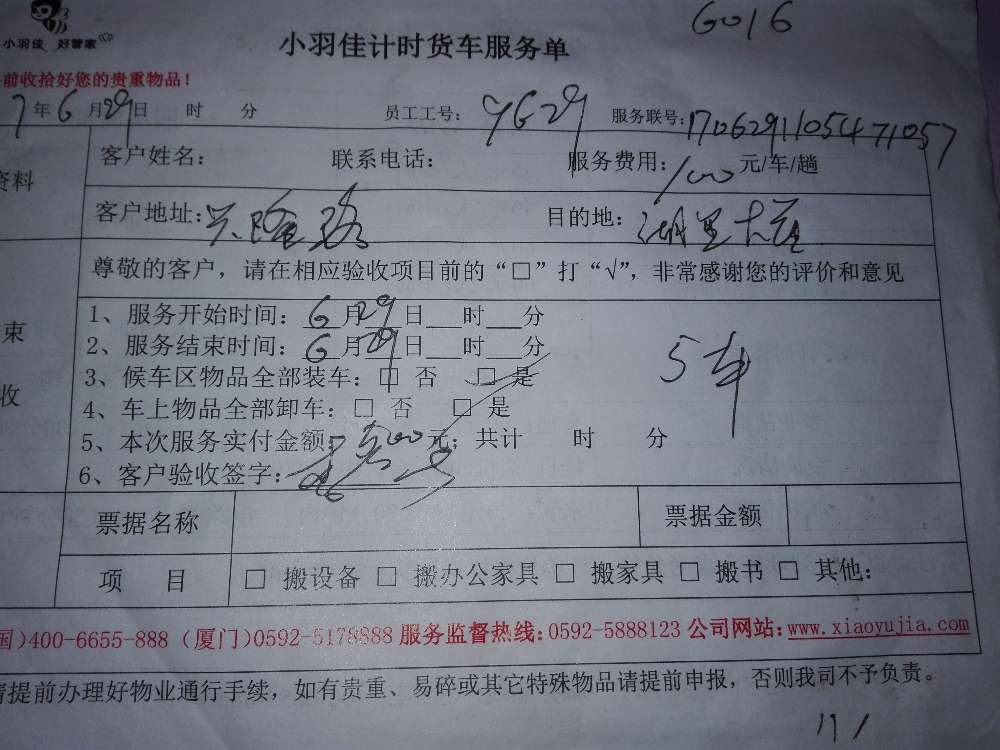 G016
小羽佳 好管家
小羽佳计时货车服务单
前收拾好您的贵重物品！
7年6月29日 时 分 员工工号： 服务联号：1706291105471057
资料 客户姓名： 联系电话： 服务费用：100元/车/趟
客户地址：兴隆路 目的地：湖里大道
尊敬的客户，请在相应验收项目前的“□”打“√”，非常感谢您的评价和意见
1、服务开始时间：6月29日___时___分
束 2、服务结束时间：6月29日___时___分
5车
3、候车区物品全部装车：□ 否 □ 是
收 4、车上物品全部卸车：□ 否 □ 是
5、本次服务实付金额：500元；共计 时 分
6、客户验收签字：
票据名称 票据金额
项 目 □ 搬设备 □ 搬办公家具 □ 搬家具 □ 搬书 □ 其他：
国)400-6655-888 (厦门)0592-5178888 服务监督热线：0592-5888123 公司网站：www.xiaoyujia.com
请提前办理好物业通行手续，如有贵重、易碎或其它特殊物品请提前申报，否则我司不予负责。